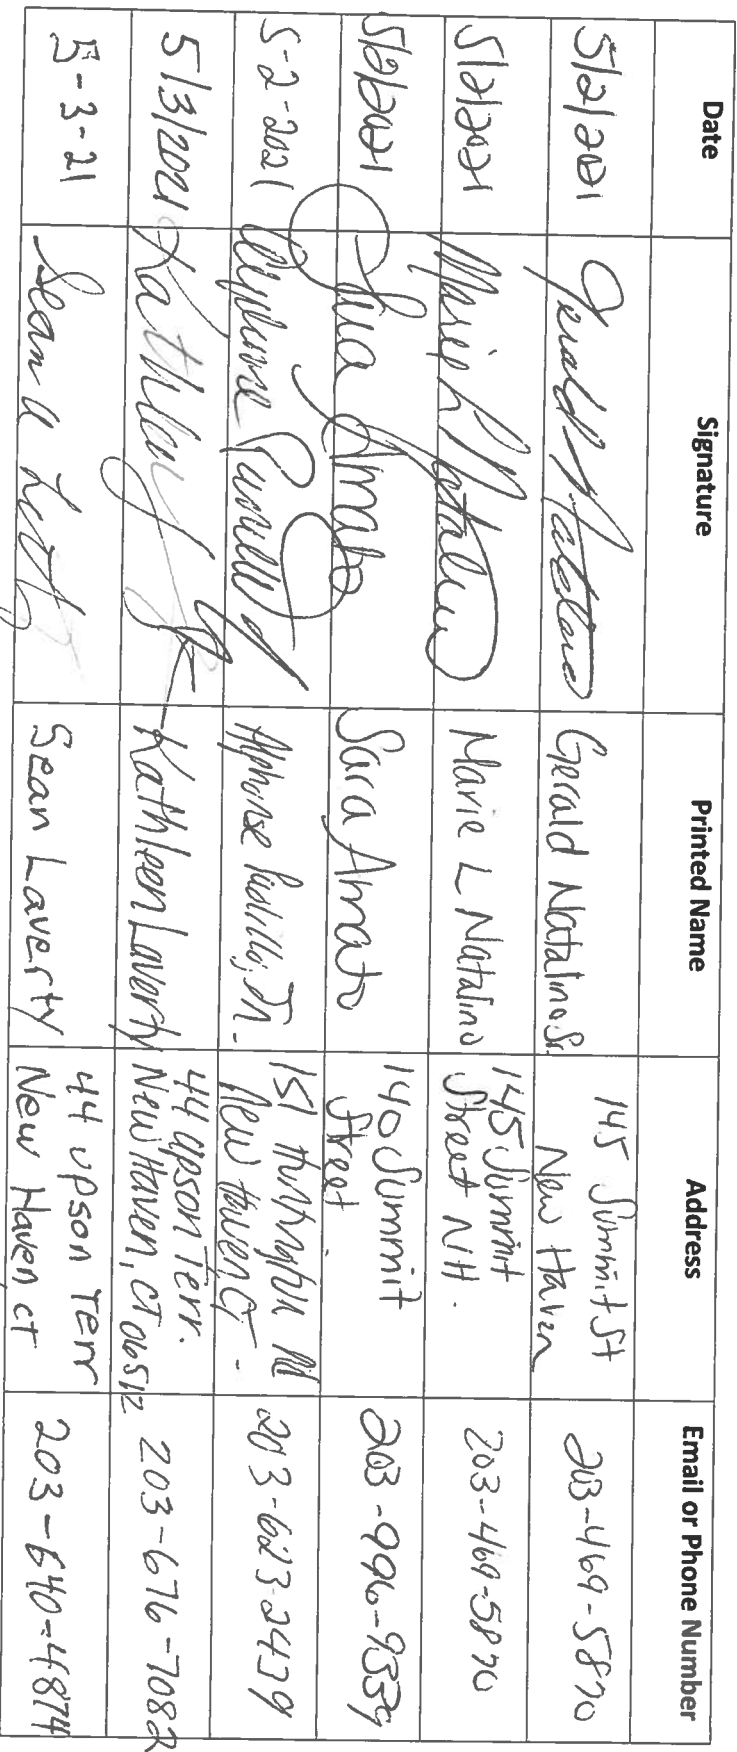 Date Signature Printed Name Address Email or Phone Number
5/2/2021 Gerald Natalino Gerald Natalino Sr. 145 Summit St
New Haven 203-469-5870
5/2/2021 Marie L Natalino Marie L Natalino 145 Summit
Street NH. 203-469-5870
5/2/2021 Sara Amato Sara Amato 140 Summit
Street 203-996-9339
5-2-2021 Alphonse Jr. 151 Huntington Rd
New Haven, CT- 203-623-2479
5/3/2021 Kathleen Kathleen Laverty 44 Upson Terr.
New Haven, CT 06512 203-676-7082
5-3-21 Sean Sean Laverty 44 Upson Terr
New Haven ct 203-640-4874